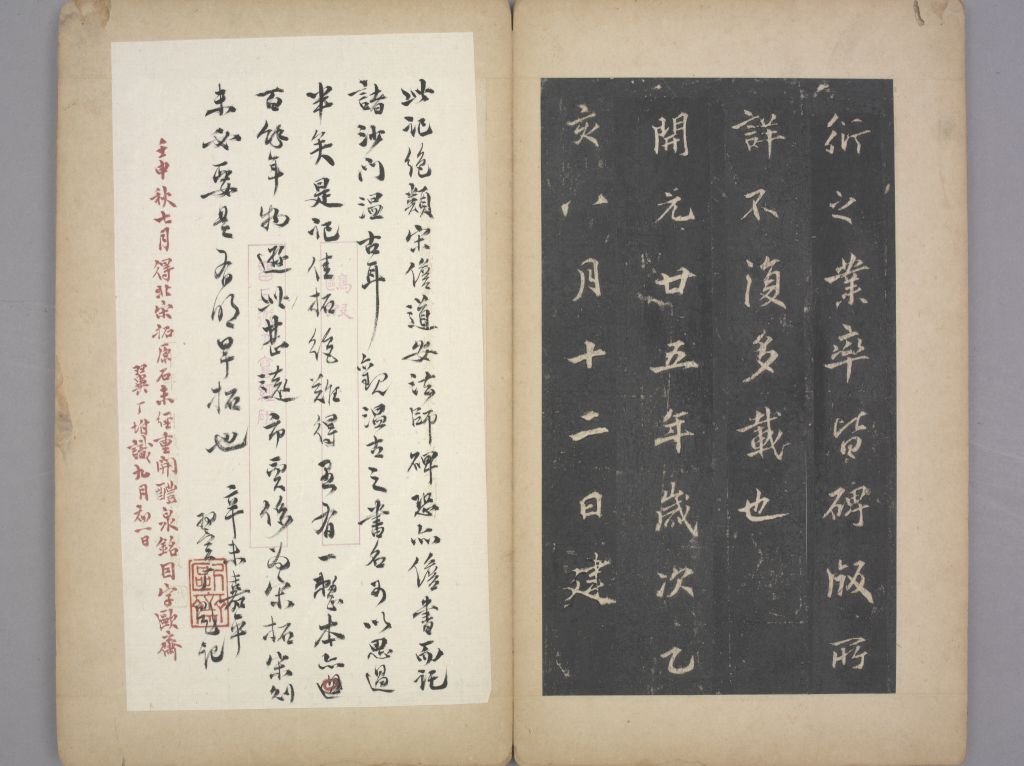 衍之業率皆碑版所
詳不復多載也
開元廿五年歲次乙
亥八月十二日建
此記絕類宋儋道安法師碑恐亦儋書而託
諸沙門溫古耳 觀溫古之書名可以思過
半矣是記佳拓絕難得 有一整本亦
百餘年物遜此甚遠市賈侈為宋拓宋刻
未必要是有明早拓也
辛未嘉平
翼盦記
壬申秋七月得北宋拓原石未經重開醴泉銘因字歐齋
翼厂增識九月初一日